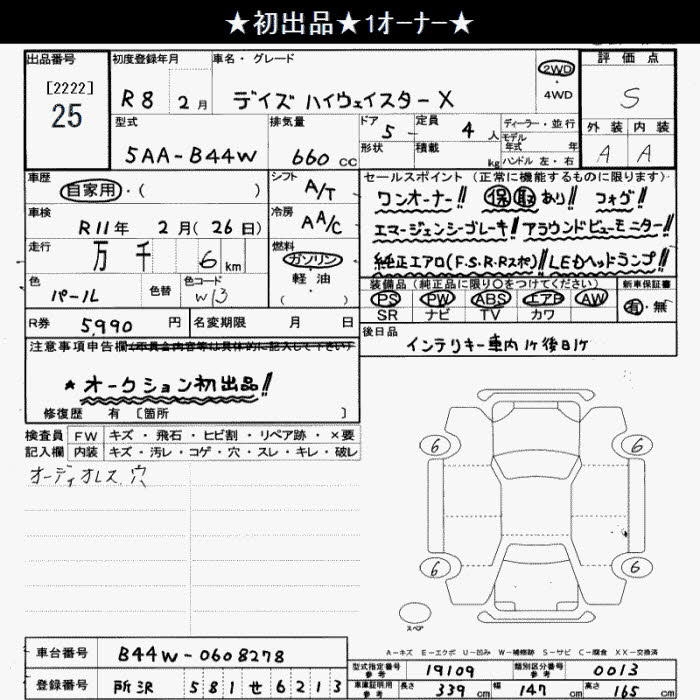 ★初出品★1オーナー★
出品番号 初度登録年月 車名・グレード 評価点
[2222] 25 R8 2月 デイズ ハイウェイスターX 2WD・4WD S
型式 排気量 ドア 定員 ディーラー・並行 外装 内装
5AA-B44W 660cc 5- 4人 モデル年式 年式 A A
形状 積載 kg ハンドル 左・右
車歴 シフト セールスポイント(正常に機能するものに限ります)
自家用・( ) A/T ワンオーナー!! 保取あり!! フォグ!!
車検 冷房 エマージェンシーブレーキ!! アラウンドビューモニター!!
R11年 2月(26日) AA/C
走行 燃料 純正エアロ(F.S.R.Rスポ)!! LEDヘッドランプ!!
万 千 6km ガソリン・軽油・( )
色 色替 色コード 装備品(純正品に限り○をつけてください) 新車保証書
パール W13 PS PW ABS エアB AW 有・無
SR ナビ TV カワ
R券 5,990円 名変期限 月 日 後日品
注意事項申告欄 インテリキー車内1ケ後日1ケ
★オークション初出品!!
修復歴 有 [箇所 ]
検査員 FW キズ・飛石・ヒビ割・リペア跡・×要
記入欄 内装 キズ・汚レ・コゲ・穴・スレ・キレ・破レ
オーディオレス 穴
6 6
6 6
スペア
A-キズ E-エクボ U-凹み W-補修跡 S-サビ C-腐食 XX-交換済
車台番号 B44W-0608278 型式指定番号 参考 19109 類別区分番号 参考 0013
登録番号 所沢 581 せ 6213 車庫証明用 参考 長さ 339cm 幅 147cm 高さ 165cm